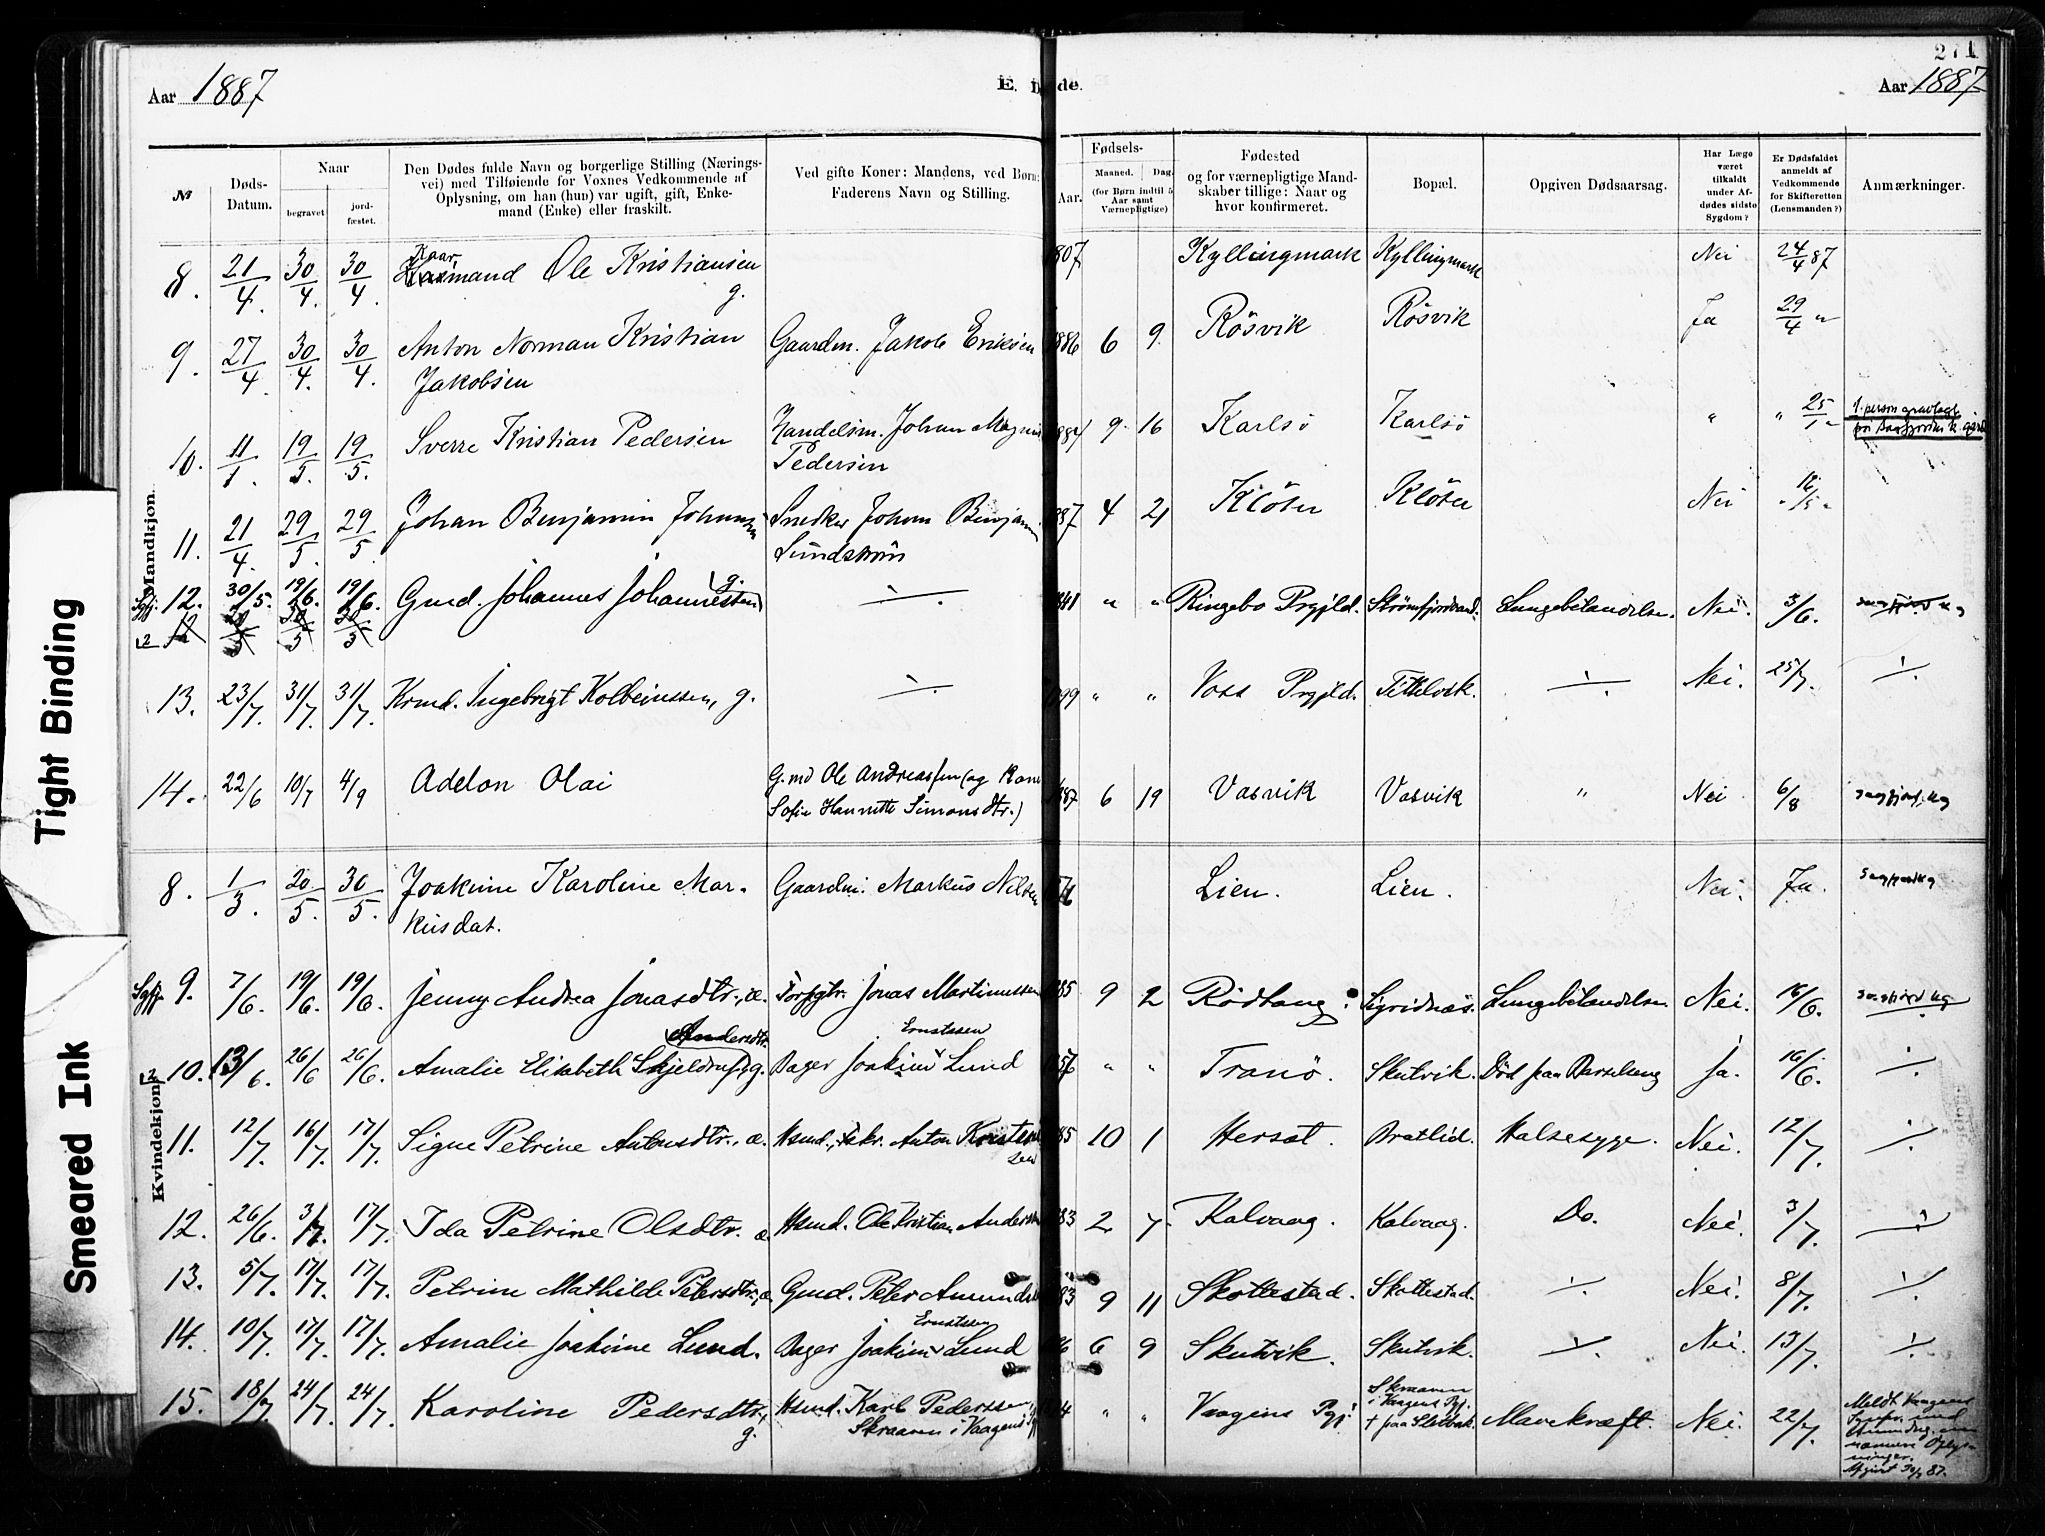 Tight Binding
Smeared Ink
274
Aar 1887
E. Døde.
Aar 1887
№
Døds-Datum.
Naar
begravet
jord-fæstet.
Den Dødes fulde Navn og borgerlige Stilling (Nærings-
vei) med Tilføiende for Voxnes Vedkommende af
Oplysning, om han (hun) var ugift, gift, Enke-
mand (Enke) eller fraskilt.
Ved gifte Koner: Mandens, ved Børn:
Faderens Navn og Stilling.
Fødsels-
Aar.
Maaned.
Dag.
(for Børn indtil 5
Aar samt
Værnepligtige)
Fødested
og for værnepligtige Mand-
skaber tillige: Naar og
hvor konfirmeret.
Bopæl.
Opgiven Dødsaarsag.
Har Læge
været
tilkaldt
under Af-
dødes sidste
Sygdom?
Er Dødsfaldet
anmeldt af
Vedkommende
for Skifteretten
(Lensmanden?)
Anmærkninger.
Mandkjøn
8. 21/4. 30/4. 30/4. Kaarmand Ole Kristiansen g. 1807 Kyllingmark Kyllingmark Nei 24/4 87
9. 27/4. 30/4. 30/4. Anton Norman Kristian Gaardm. Jakob Eriksen 1886 6 9. Rösvik Rösvik Ja 29/4 "
Jakobsen
10. 11/1. 19/5. 19/5. Sverre Kristian Pedersen Handelsm. Johan Magnus 1884 9. 16 Karlsö Karlsö " " 25/1 " 1. person gravlagt
Pedersen
11. 21/4. 29/5. 29/5. Johan Benjamin Johansen Snedker Johan Benjamin 1887 4 21 Klöten Klöten Nei
Lundström
Sgfj. 12. 30/5. 19/6. 19/6. Gmd. Johannes Johannessen g. ./. 1841 " " Ringebo Prgjld. Strömfjordsand. Lungebetændelse. Nei. 3/6. Sagfjord kg
13. 23/7. 31/7. 31/7. Krmd. Ingebrigt Kolbeinssen, g. ./. 1799 " " Voss Prgjld. Tittelvik. ./. Nei. 25/7. ./.
14. 22/6 10/7 4/9 Adelon Olai G.md Ole Andreassen (og Kone 1887 6 19 Vasvik Vasvik " Nei 6/8 Sagfjord. kg
Sofie Hanritte Simonsdtr.)
Kvindekjøn
8. 1/3. 20/5. 30/5. Joakime Karoline Mar- Gaardm. Markus Nilsen Lien. Lien. Nei. Ja. Sagfjord kg
kusdat.
Sgfj. 9. 7/6. 19/6. 19/6. Jenny Andrea Jonasdtr., æ. Torpgtr. Jonas Martinussen 1885 9 2 Rödtang. Sigridnæs. Lungebetændelse Nei. 16/6. Sagfjord kg
Andersdtr. Ernstssen
10. 13/6. 26/6 26/6. Amalie Elisabeth Skjeldrup, g. Bager Joakim Lund 1857 " " Tranö. Skutvik. Död paa Barselseng Ja. 16/6. ./.
11. 12/7. 16/7. 17/7. Signe Petrine Antonsdtr., æ. Hsmd., Anton Kristen- 1885 10 1 Hersæt. Bratlid. Halsesyge. Nei. 12/7. ./.
sen
12. 26/6. 3/7. 17/7. Ida Petrine Olsdtr. æ. Hsmd. Ole Kristian Anderssen 1883 2 7. Kalvaag. Kalvaag. Do. Nei. 3/7. ./.
13. 5/7. 17/7. 17/7. Petrine Mathilde Petersdtr., æ. Gmd. Peter Amundsen 1883 9 11 Skottestad. Skottestad. ./. Nei. 8/7. ./.
Ernstssen
14. 10/7. 17/7. 17/7. Amalie Joakime Lund. Bager Joakim Lund 1886 6 9 Skutvik. Skutvik. ./. Nei. 13/7. ./.
15. 18/7. 24/7. 24/7. Karoline Pedersdtr., g. Hsmd. Karl Pederssen, Vaagens Pgj. Skraaven
Skraaven i Vaagens i Vaagens Pgj.
Mavekræft. Nei. 22/7. Meldt Vaagens